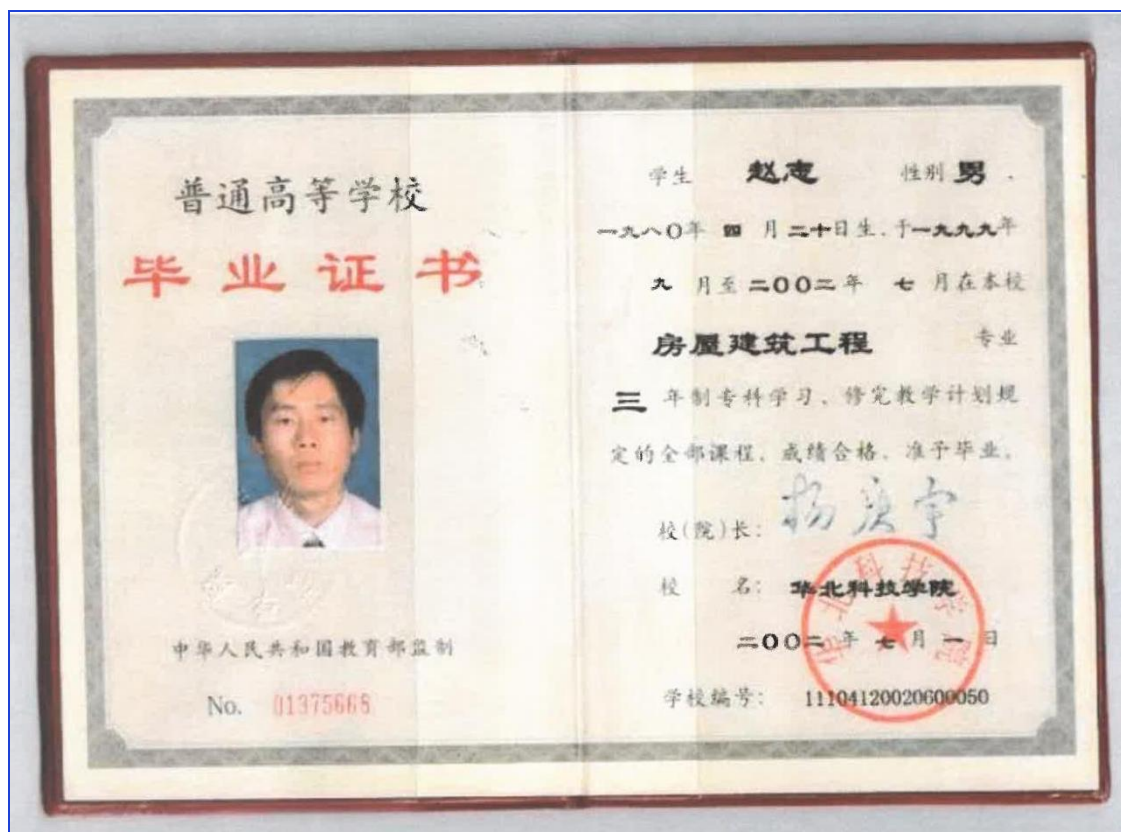 普通高等学校
毕业证书
中华人民共和国教育部监制
No. 01375666
学生 赵志 性别 男
一九八〇年 四 月 二十日生, 于一九九九年
九 月至 二〇〇二 年 七 月在本校
房屋建筑工程 专业
三 年制专科学习, 修完教学计划规
定的全部课程, 成绩合格, 准予毕业。
校(院)长: 杨庚宇
校 名: 华北科技学院
二〇〇二 年 七 月 一 日
学校编号: 111041200206000050
华北科技学院